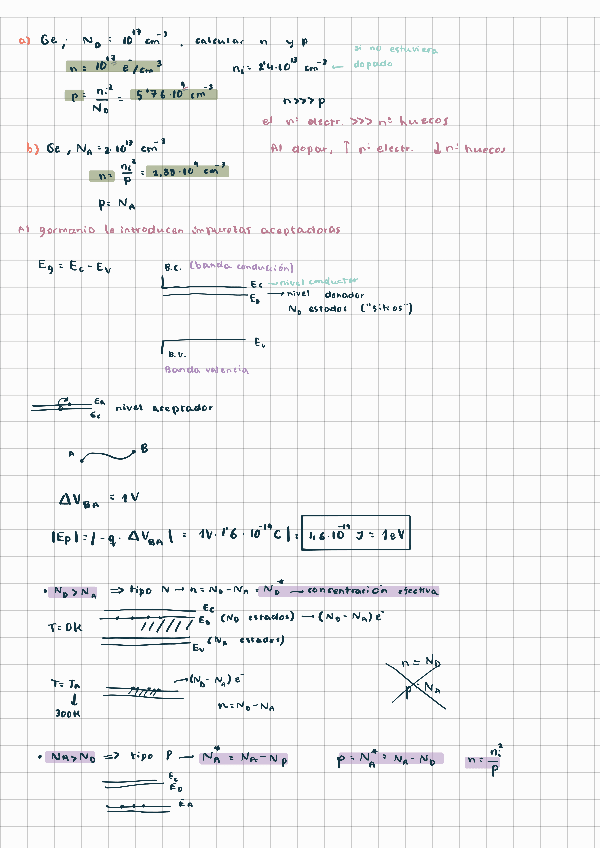 a) Ge, N_D = 10^17 cm^-3, calcular n y p
si no estuviera
dopado
n = 10^17 e^-/cm^3
n_i = 2'4·10^13 cm^-3 ←
p = n_i^2/N_D = 5'76·10^9 cm^-3
n >>> p
el nº electr. >>> nº huecos
b) Ge, N_A = 2·10^17 cm^-3
Al dopar, ↑ nº electr. ↓ nº huecos
n = n_i^2/p = 2,88·10^9 cm^-3
p = N_A
Al germanio le introducen impurezas aceptadoras
E_g = E_c - E_v
B.C. (banda conducción)
E_c → nivel conductor
E_D → nivel donador
N_D estados ("sitios")
E_v
B.V.
Banda valencia
E_A
E_c
nivel aceptador
A B
ΔV_BA = 1V
|E_p| = |-q · ΔV_BA| = 1V · 1'6 · 10^-19 C | = 1,6·10^-19 J = 1eV
• N_D > N_A ⇒ tipo N → n = N_D - N_A = N_D^* → concentración efectiva
E_c
T = 0K
E_D (N_D estados) → (N_D - N_A) e^-
E_V (N_A estados)
T = T_A
↓
300K
→ (N_D - N_A) e^-
n = N_D - N_A
n = N_D
p = N_A
• N_A > N_D ⇒ tipo P → N_A^* = N_A - N_D
p = N_A^* = N_A - N_D
n = n_i^2/p
E_c
E_D
E_A